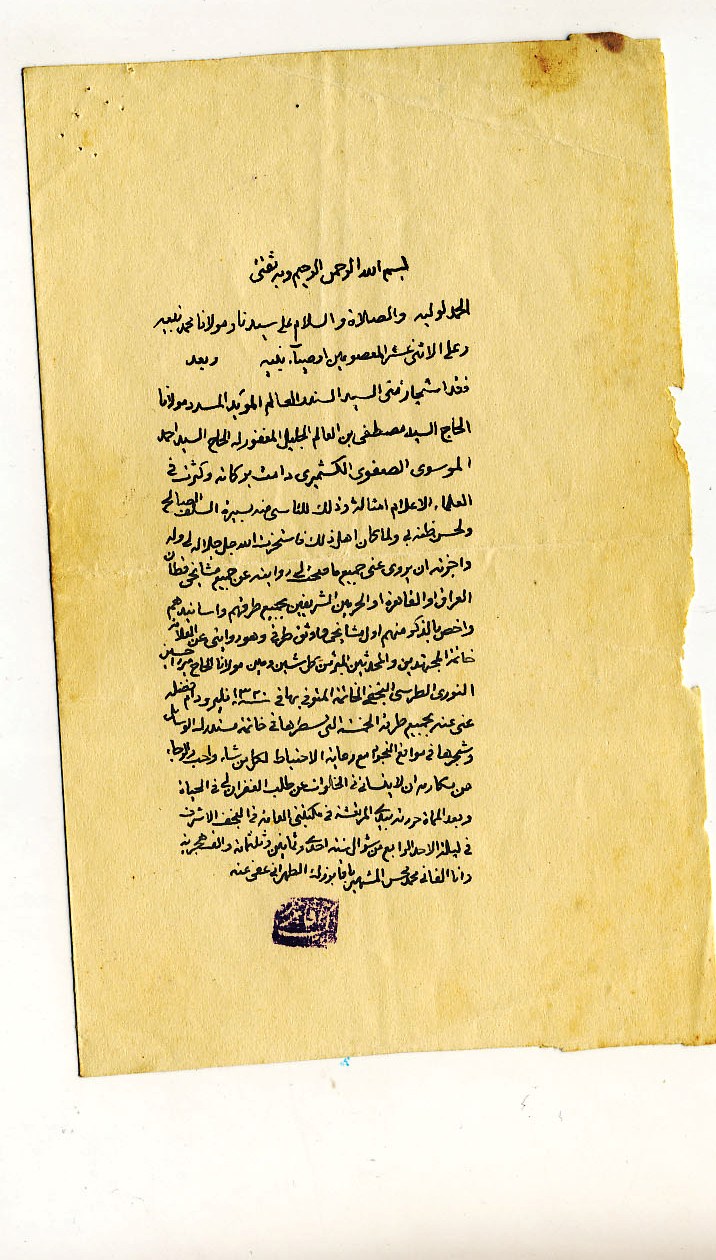 بسم الله الرحمن الرحيم وبه ثقتي
الحمد لوليه والصلاة والسلام على سيدنا ومولانا محمد نبيه
وعلى الاثنى عشر المعصومين اوصياء نبيه وبعد
فقد استجازني السيد السند العالم المؤيد المسدد مولانا
الحاج السيد مصطفى بن العالم الجليل المغفور له الحاج السيد احمد
الموسوى الصفوى الكشميرى دامت بركاته وكثرت في
العلماء الاعلام امثاله وذلك للتاسي منه بسيرة السلف الصالح
ولحسن ظنه بي ولما كان اهلا لذلك فاستخرت الله جل جلاله لي وله
واجزته ان يروى عني جميع ما صحت لي روايته عن جميع مشايخي قطان
العراق او القاهرة او الحرمين الشريفين بجميع طرقهم واسانيدهم
واخص بالذكر منهم اول مشايخي واوثق طرقي وهو روايتي عن العلامة
خاتمة المجتهدين والمحدثين المبرء من كل شين ومين مولانا الحاج ميرزا حسين
النورى الطبرسى النجفى الخاتمة المتوفى بها في سنة ١٣٢٠ فليرو دام فضله
عني عنه بجميع طرقه الخمسة التي سطرها في خاتمة مستدرك الوسائل
وشجرها في مواقع النجوم مع رعاية الاحتياط لكل من شاء واحب والرجاء
من مكارمه ان لا ينساني في الخلوات عن طلب الغفران لي في الحياة
وبعد الممات حررته بيدى المرتعشة في مكتبتي العامة في النجف الاشرف
في ليلة الاحد الرابع من شوال سنة احدى وثمانين وثلثمائة والف هجرية
وانا الفاني محمد محسن المشهور باقا بزرك الطهراني عفى عنه